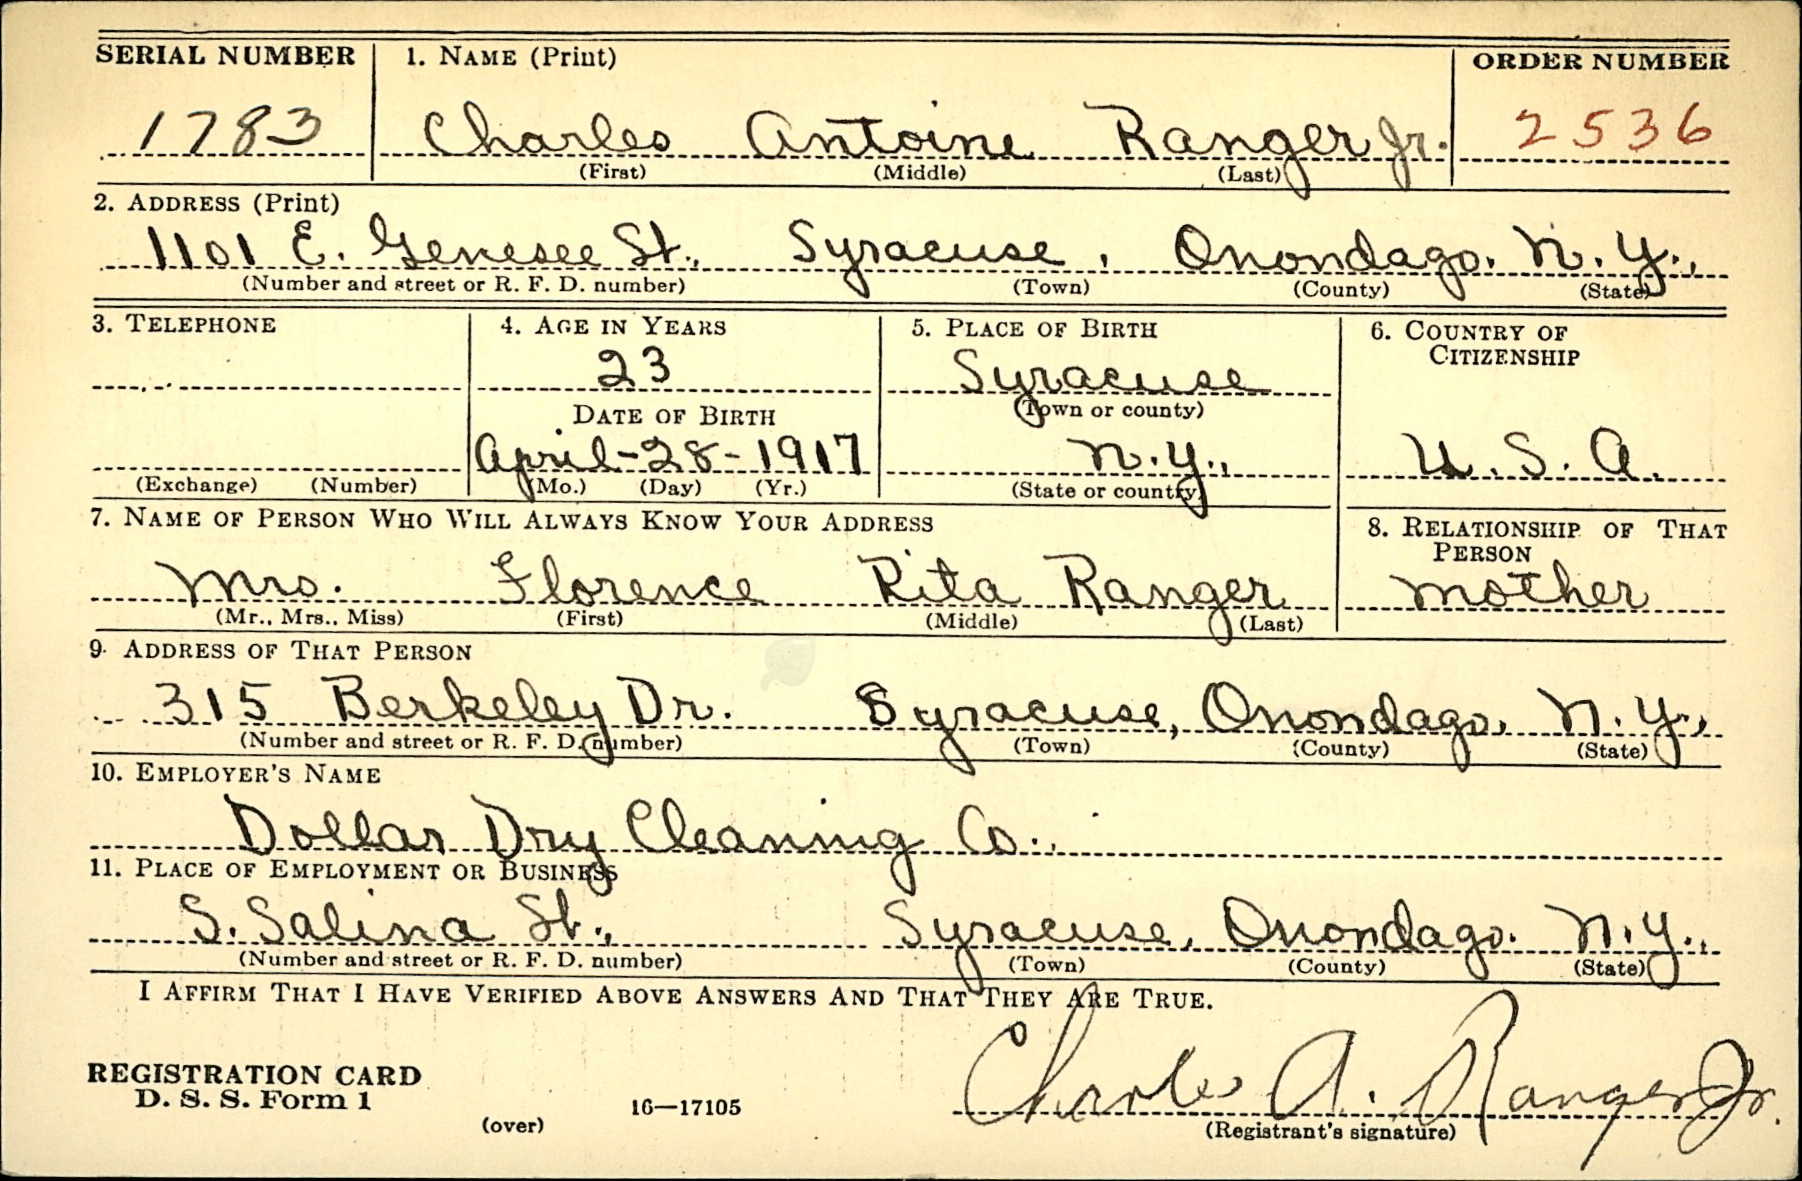 SERIAL NUMBER 1. NAME (Print) ORDER NUMBER
1783 Charles Antoine Ranger Jr. 2536
(First) (Middle) (Last)
2. ADDRESS (Print)
1101 E. Genesee St., Syracuse, Onondago. N.Y.,
(Number and street or R. F. D. number) (Town) (County) (State)
3. TELEPHONE 4. AGE IN YEARS 5. PLACE OF BIRTH 6. COUNTRY OF CITIZENSHIP
23 Syracuse
DATE OF BIRTH (Town or county)
April-28-1917 N.Y., U.S.A.
(Exchange) (Number) (Mo.) (Day) (Yr.) (State or country)
7. NAME OF PERSON WHO WILL ALWAYS KNOW YOUR ADDRESS 8. RELATIONSHIP OF THAT PERSON
Mrs. Florence Rita Ranger mother
(Mr., Mrs., Miss) (First) (Middle) (Last)
9. ADDRESS OF THAT PERSON
315 Berkeley Dr. Syracuse, Onondago, N.Y.,
(Number and street or R. F. D. number) (Town) (County) (State)
10. EMPLOYER'S NAME
Dollar Dry Cleaning Co.,
11. PLACE OF EMPLOYMENT OR BUSINESS
S. Salina St., Syracuse, Onondago. N.Y.,
(Number and street or R. F. D. number) (Town) (County) (State)
I AFFIRM THAT I HAVE VERIFIED ABOVE ANSWERS AND THAT THEY ARE TRUE.
Charles A. Ranger Jr.
REGISTRATION CARD
D. S. S. Form 1
(over) 16—17105 (Registrant's signature)